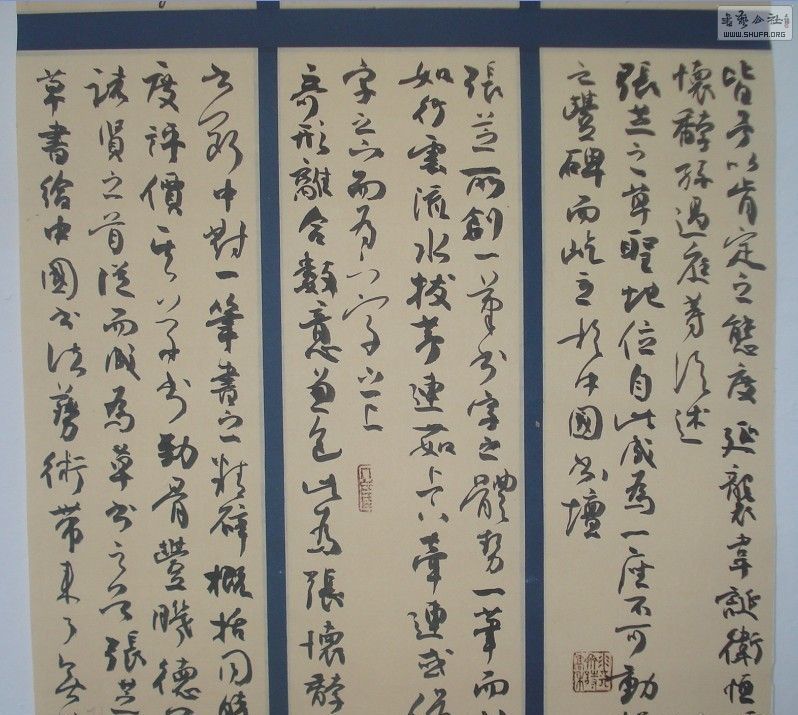 皆予以肯定之態度延襲韋誕衛恒
懷瓘孫過庭等次述
張芝之草聖地位自此成為一座不可動
之豐碑而屹立於中國書壇
張芝所創一筆書字之體勢一筆而
如行雲流水拔茅連茹上下牽連或
字之下而為下字之上
奇形離合數意兼包此為張懷瓘
書斷中對一筆書之精辟概括同時
度評價其一筆書勁骨豐肌德
諸賢之首從而成為草書之父張芝
草書給中國書法藝術帶來了無
書藝公社
WWW.SHUFA.ORG